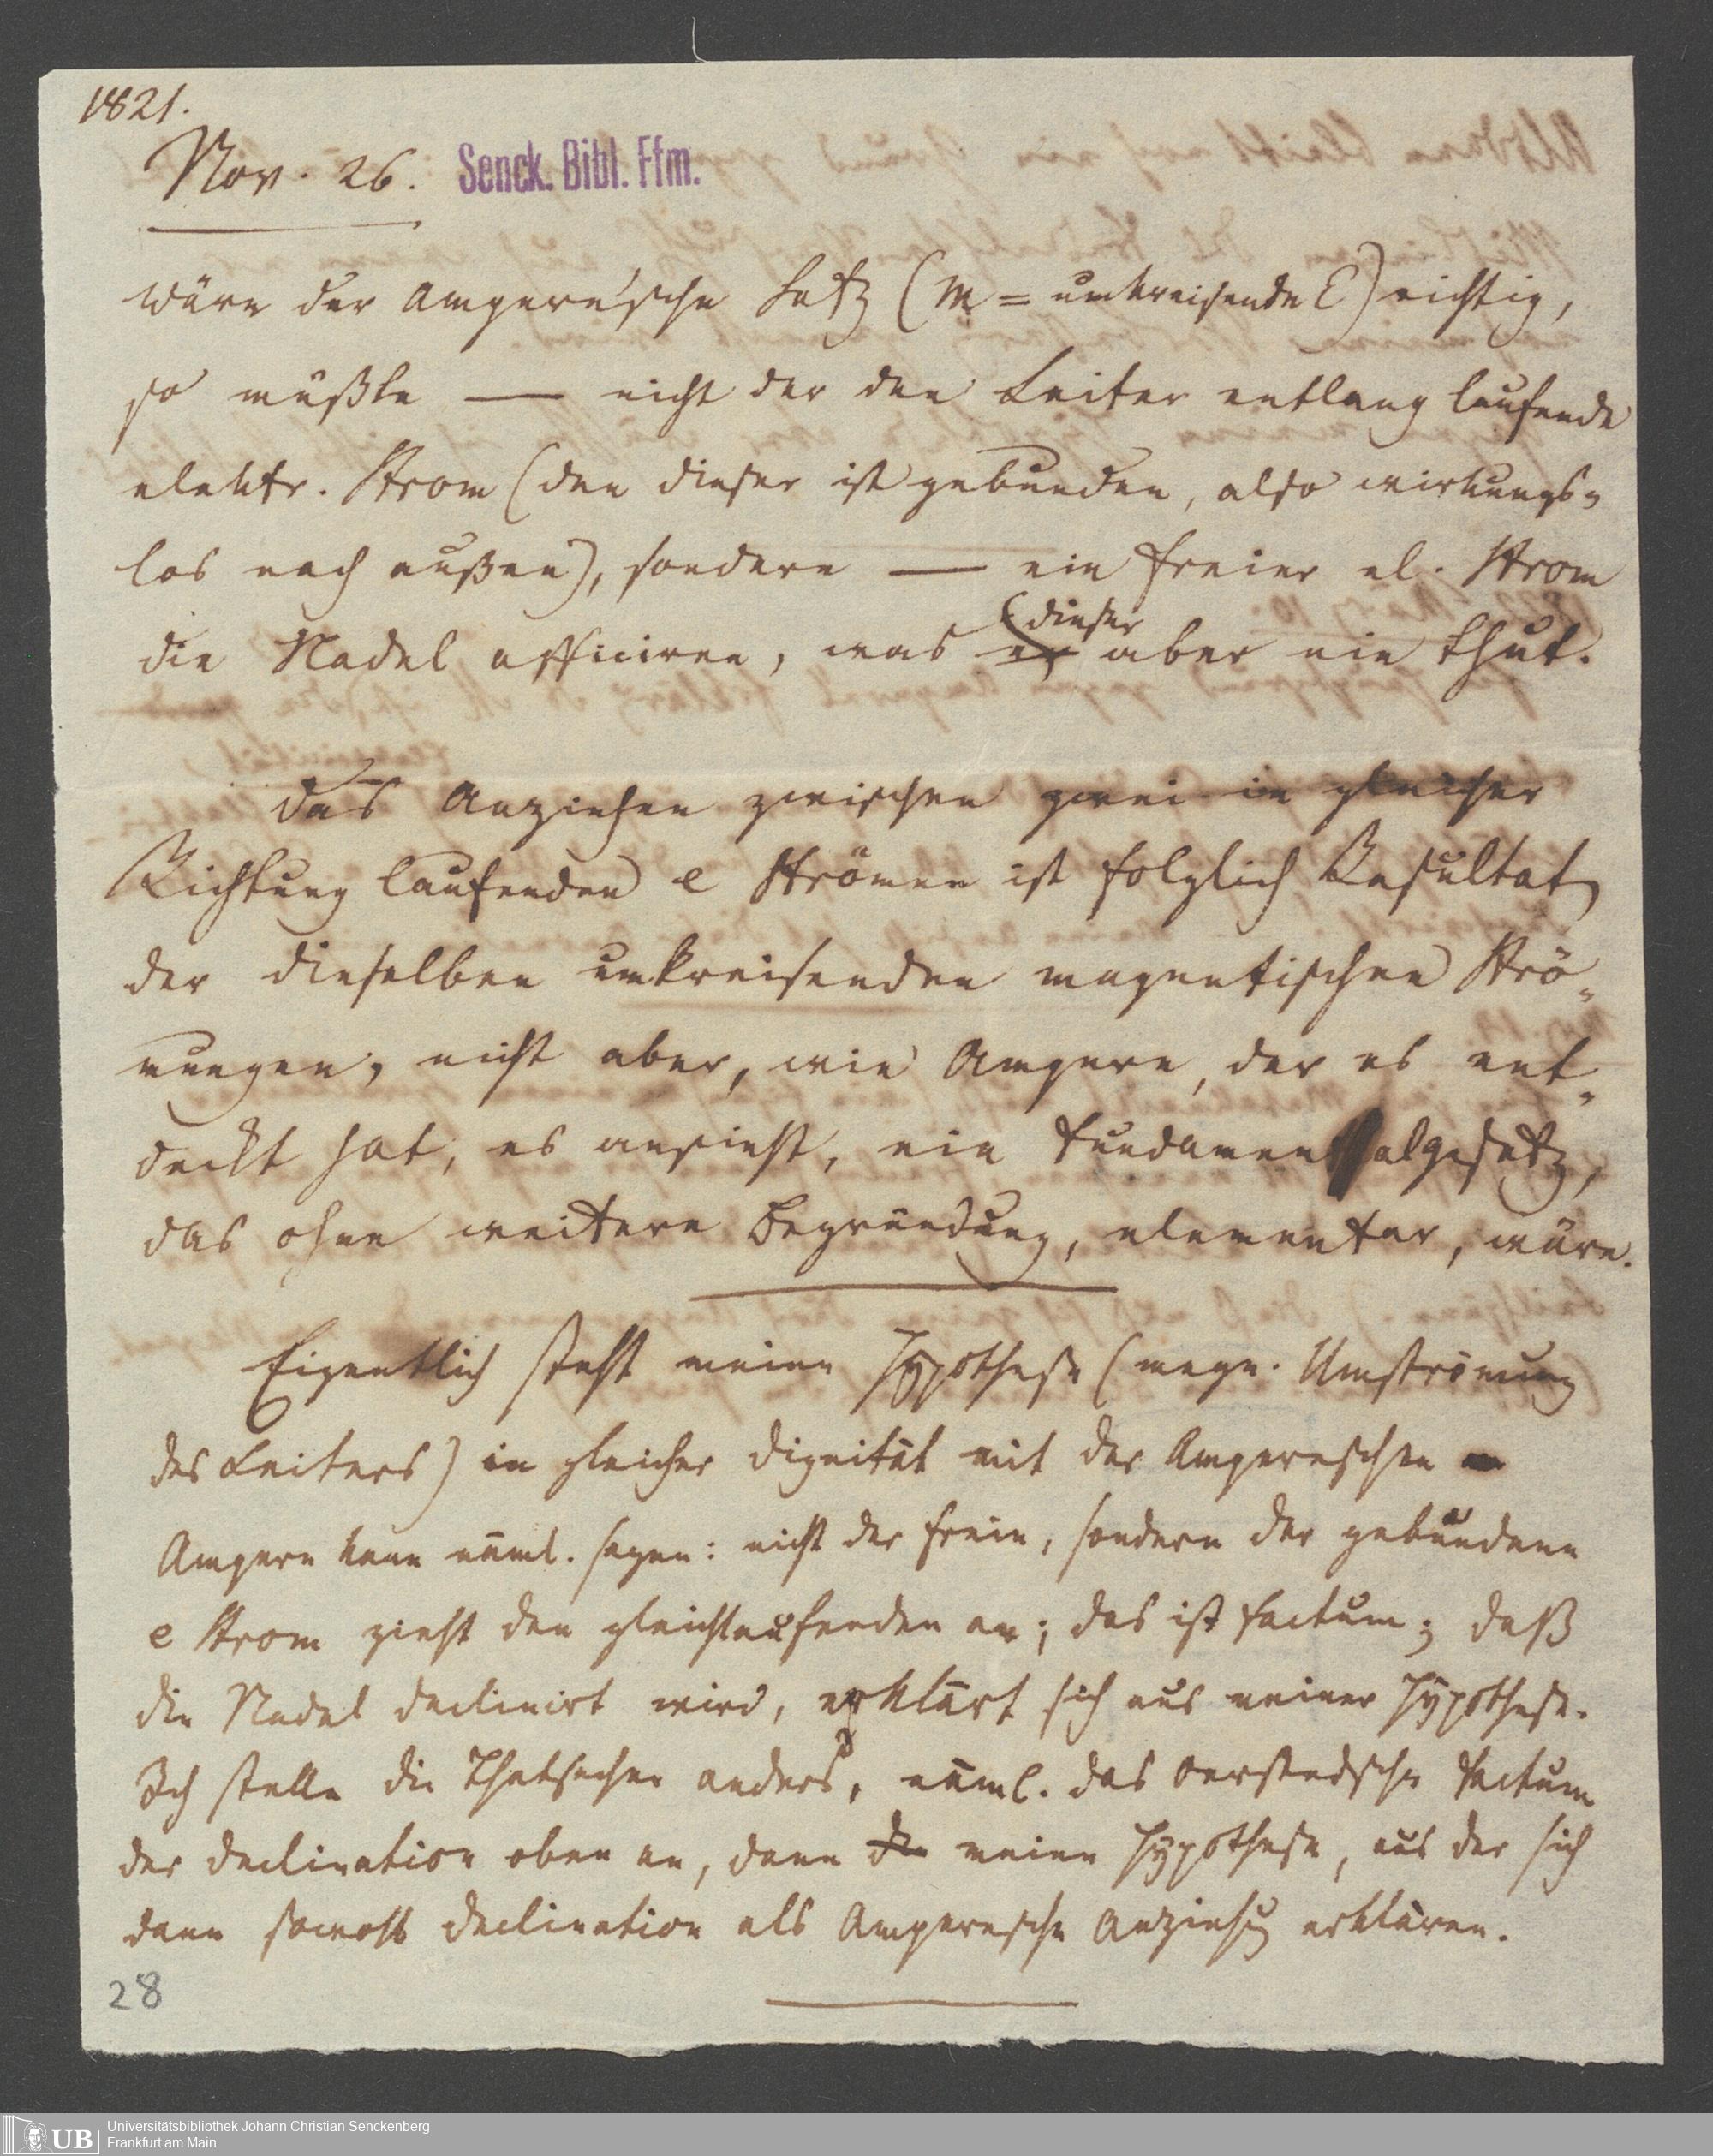 1821.
Nov. 26. Senck. Bibl. Ffm.
wäre der Ampere'sche Satz (M = umkreisende E) richtig,
so müßte — nicht der den Leiter entlang laufende
elektr. Strom (den dieser ist gebunden, also wirkungs-
los nach außen), sondern — ein freier el. Strom
die Nadel afficiren, was er dieser aber nie thut.
das Anziehen zwischen zwei in gleicher
Richtung laufenden e Strömen ist folglich Resultat
der dieselben umkreisenden magnetischen Strö-
mungen, nicht aber, wie Ampere, der es ent-
deckt hat, es ansieht, ein Fundamentalgesetz,
das ohne weitere Begründung, elementar, wäre.
Eigentlich steht meine Hypothese (magn. Umströmung
des Leiters) in gleicher Dignität mit der Ampereschen
Ampere kann näml. sagen: nicht der freie, sondern der gebundene
e Strom zieht den gleichlaufenden an; das ist factum; daß
die Nadel declinirt wird, erklärt sich aus meiner Hypothese.
Ich stelle die Thatsachen anders, näml. das Oerstedsche Factum
der Declination oben an, dann die meine Hypothese, aus der sich
dann sowohl Declination als Amperesche Anziehung erklären.
28
UB Universitätsbibliothek Johann Christian Senckenberg
Frankfurt am Main